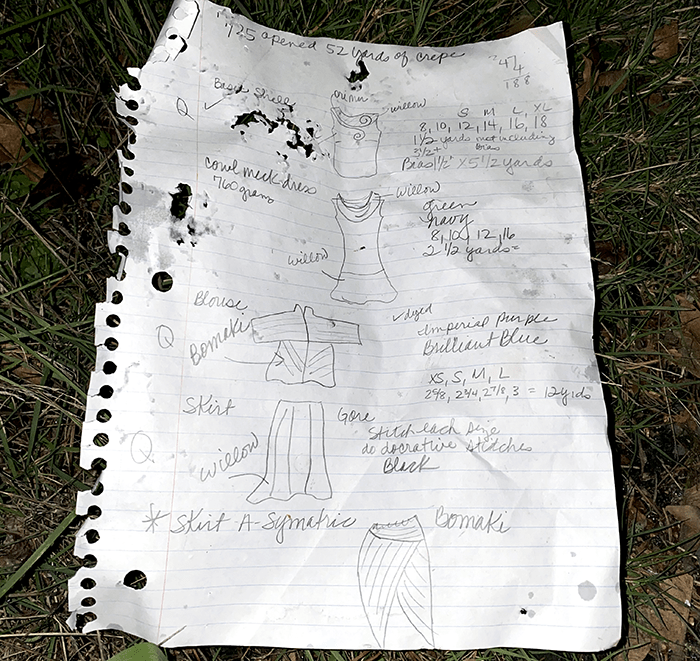 7/25 opened 52 yards of crepe
44
188
Basic Shell
willow
Q ✓
S M L, XL
8, 10, 12, 14, 16, 18
1 1/2 yards not including
Bias
Bias 1 1/2" X 5 1/2 yards
Cowl neck dress
760 grams
Willow
Green
Navy
8, 10, 12, 16
2 1/2 yards =
Willow
Blouse
✓ dyed
Q Bomaki
Imperial Purple
Brilliant Blue
XS, S, M, L
2 5/8, 2 3/4, 2 7/8, 3 = 12 yrds
Skirt
Gore
Q Willow
Stitch each size
do docrative stitches
Black
* Skirt A-Symatric
Bomaki